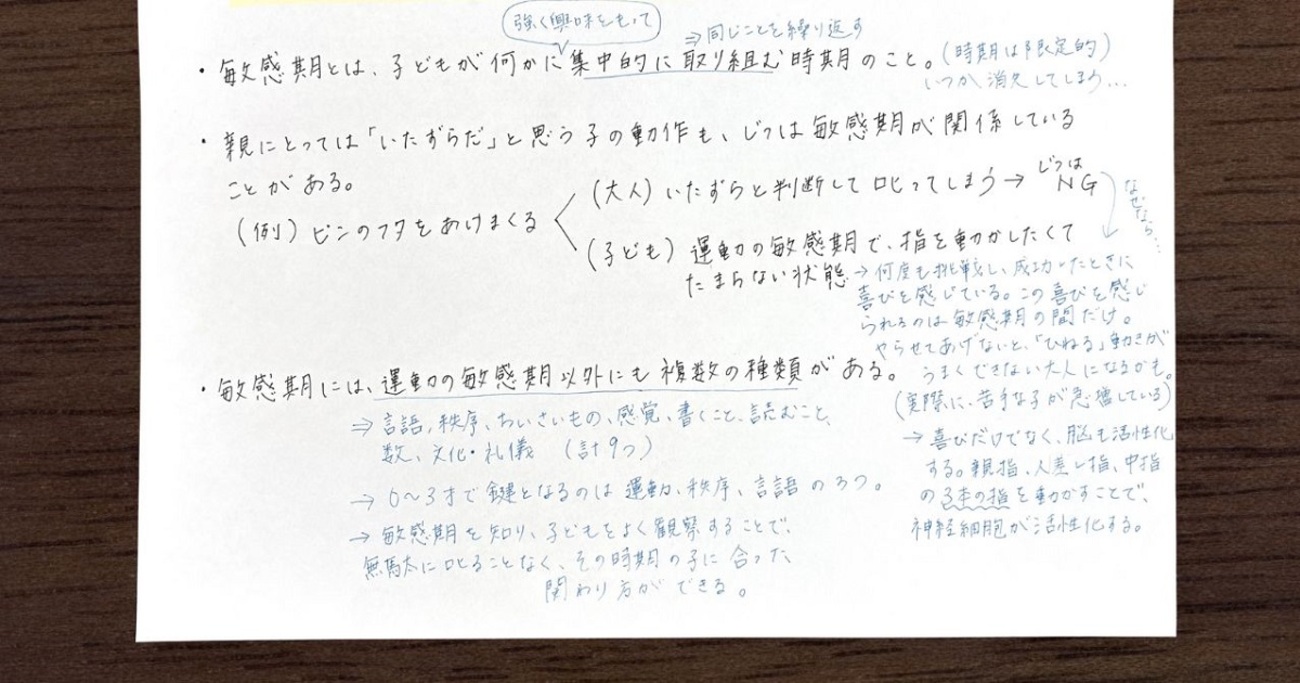 強く興味をもって
⇒同じことを繰り返す
・敏感期とは、子どもが何かに集中的に取り組む時期のこと。(時期は限定的)
いつか消失してしまう…
・親にとっては「いたずらだ」と思う子の動作も、じつは敏感期が関係している
ことがある。
(例)ビンのフタをあけまくる
(大人)いたずらと判断して叱ってしまう→じつはNG
なぜなら…
(子ども)運動の敏感期で、指を動かしたくて
たまらない状態
→何度も挑戦し、成功したときに
喜びを感じている。この喜びを感じ
られるのは敏感期の間だけ。
やらせてあげないと、「ひねる」動きが
うまくできない大人になるかも。
(実際に、苦手な子が急増している)
→喜びだけでなく、脳も活性化
する。親指、人差し指、中指
の3本の指を動かすことで、
神経細胞が活性化する。
・敏感期には、運動の敏感期以外にも複数の種類がある。
⇒言語、秩序、ちいさいもの、感覚、書くこと、読むこと、
数、文化・礼儀 (計9つ)
→0〜3才で鍵となるのは運動、秩序、言語の3つ。
→敏感期を知り、子どもをよく観察することで、
無駄に叱ることなく、その時期の子に合った
関わり方ができる。